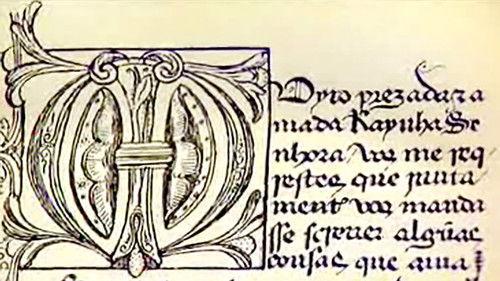 Muyto prezada z a
mada Raynha Se
nhora. Vos me req
restes que junta
ment' vos manda
sse screver algũas
cousas, que avia